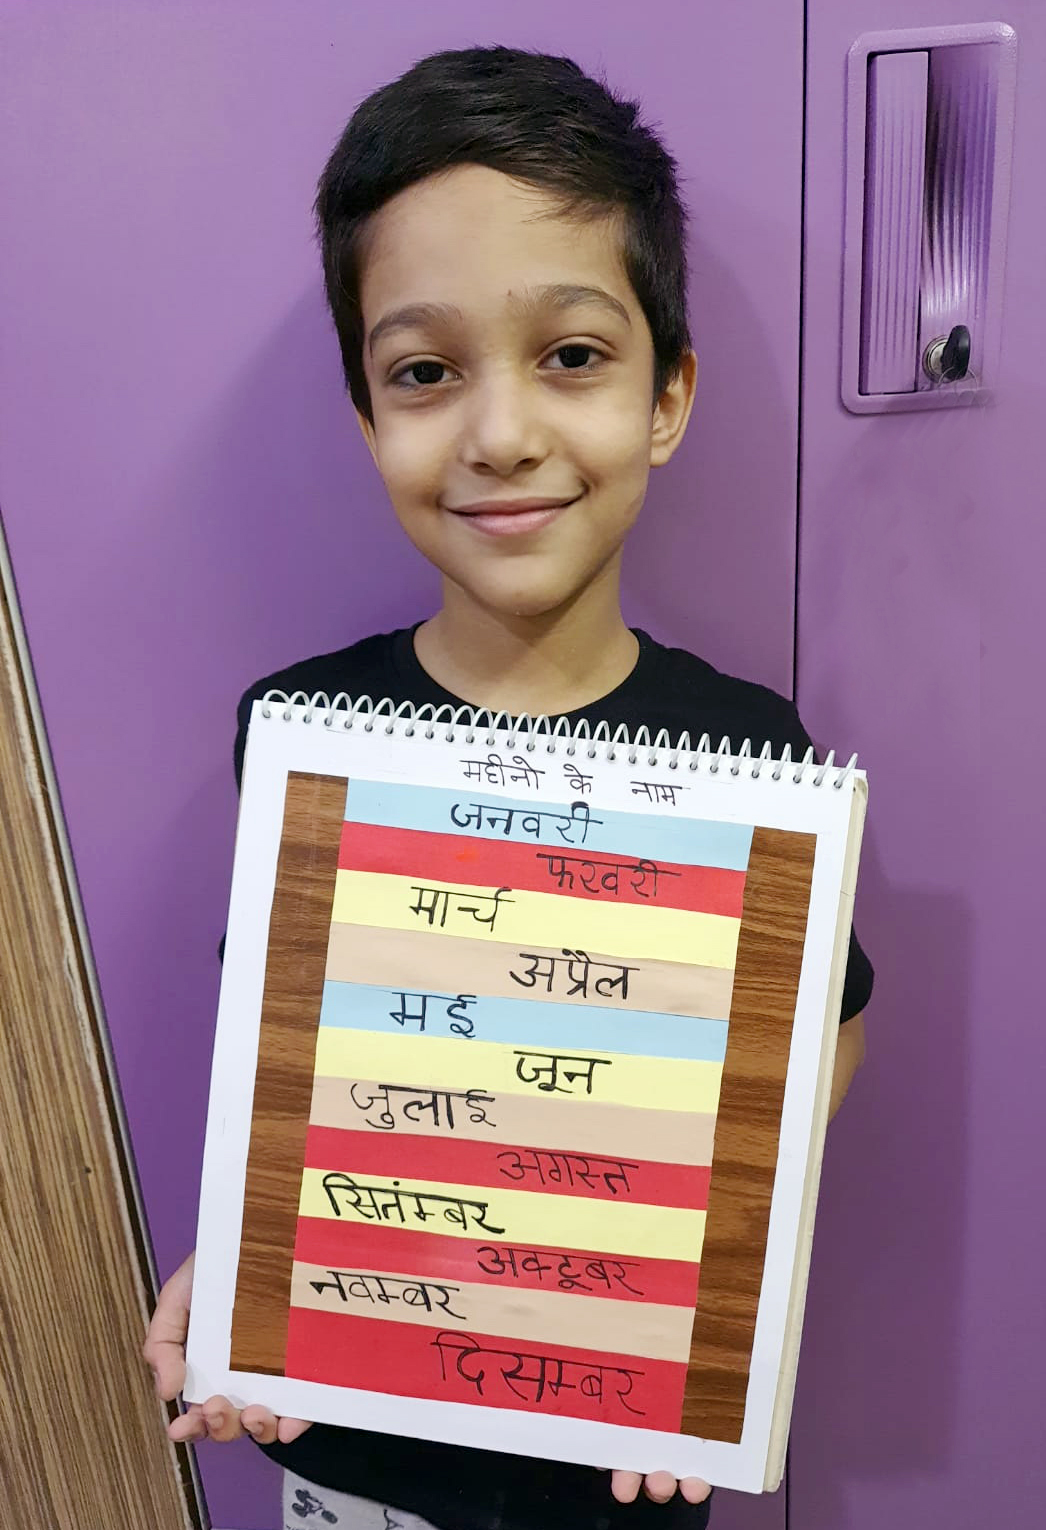 महीनो के नाम
जनवरी
फरवरी
मार्च
अप्रैल
मई
जून
जुलाई
अगस्त
सितंम्बर
अक्टूबर
नवम्बर
दिसम्बर